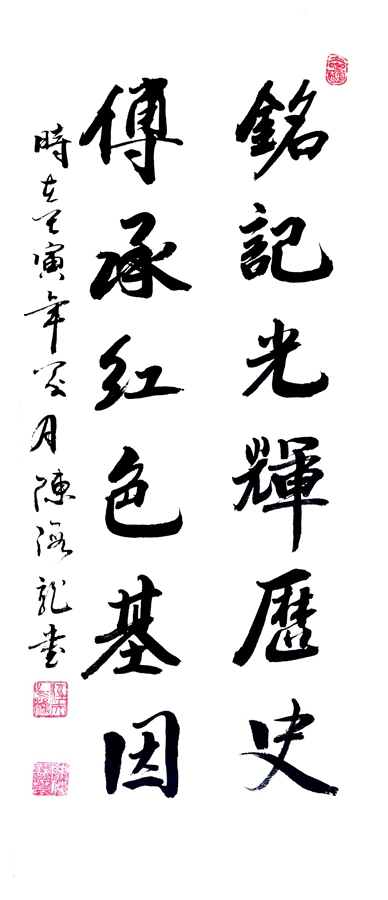 銘記光輝歷史
傳承红色基因
時在壬寅年月陳海龍書